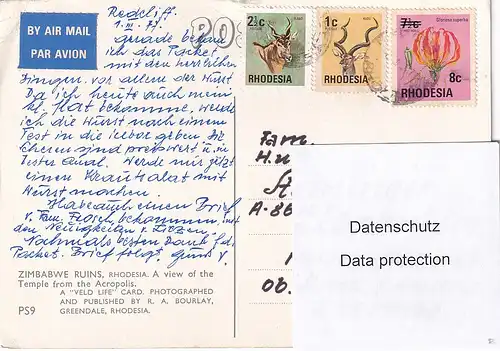 BY AIR MAIL
PAR AVION
Redcliff.
gerade bekam
ich das Packet
mit den herrlichen
Dingen, vor allem der Wurst
Da ich heute auch mein
kl. Hat bekomme, werde
ich die Wurst nach einem
Test in die geben die
sind preiswert u. in
Werde mir jetzt
einen Krautsalat mit
Wurst machen.
Habe auch einen Brief
v. Fam. bekommen, mit
den Neuigkeiten v.
Nochmals besten Dank f. d.
Packet. Brief folgt. Gruss v.
ZIMBABWE RUINS, RHODESIA. A view of the
Temple from the Acropolis.
A "VELD LIFE" CARD. PHOTOGRAPHED
AND PUBLISHED BY R. A. BOURLAY,
GREENDALE, RHODESIA.
PS9
PO
2½c
RHODESIA
1c
RHODESIA
7½c
Gloriosa superba
8c
RHODESIA
Fam.
H. u
A-88
Ob.
Datenschutz
Data protection